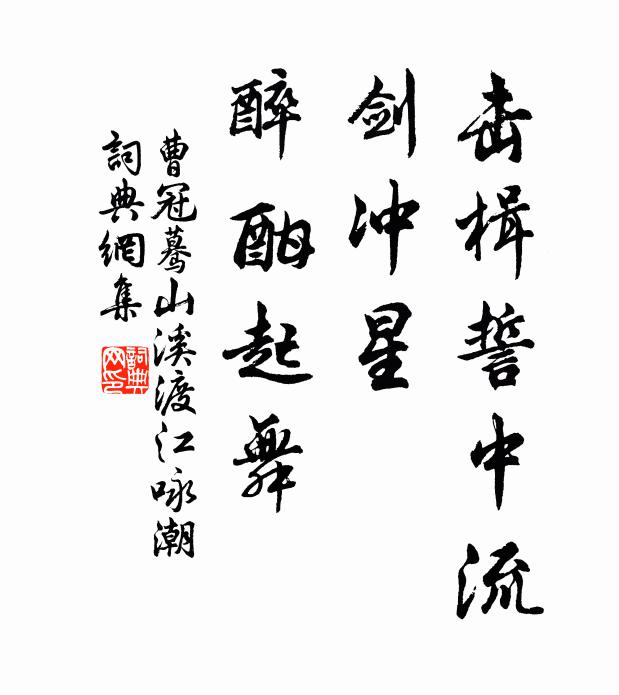 击楫誓中流
剑冲星
醉酣起舞
曹冠蓦山溪渡江咏潮
词典網集
詞典网印